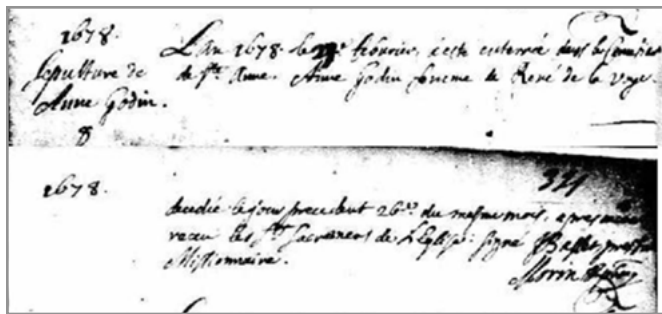 1678.
Sepulture de
Anne Godin.
8
L'an 1678. le février, a esté enterrée dans le
de Ste. Anne. Anne Godin femme de René de la voye
1678.
331
decedée le jour precedent 26e. du mesme mois, apres
receu les Sts. Sacremens de L'Eglise: signé Basset prestre
Missionnaire.
Morin